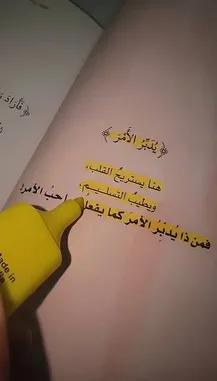 ﴿ يُدَبِّرُ الأَمْرَ ﴾
هنا يستريحُ القلب،
ويطيبُ التسليم،
فمن ذا يُدبِّرُ الأمرَ كما يفعلُ
حبُ الأمر؟
﴿فَأَرَادَ
ade in